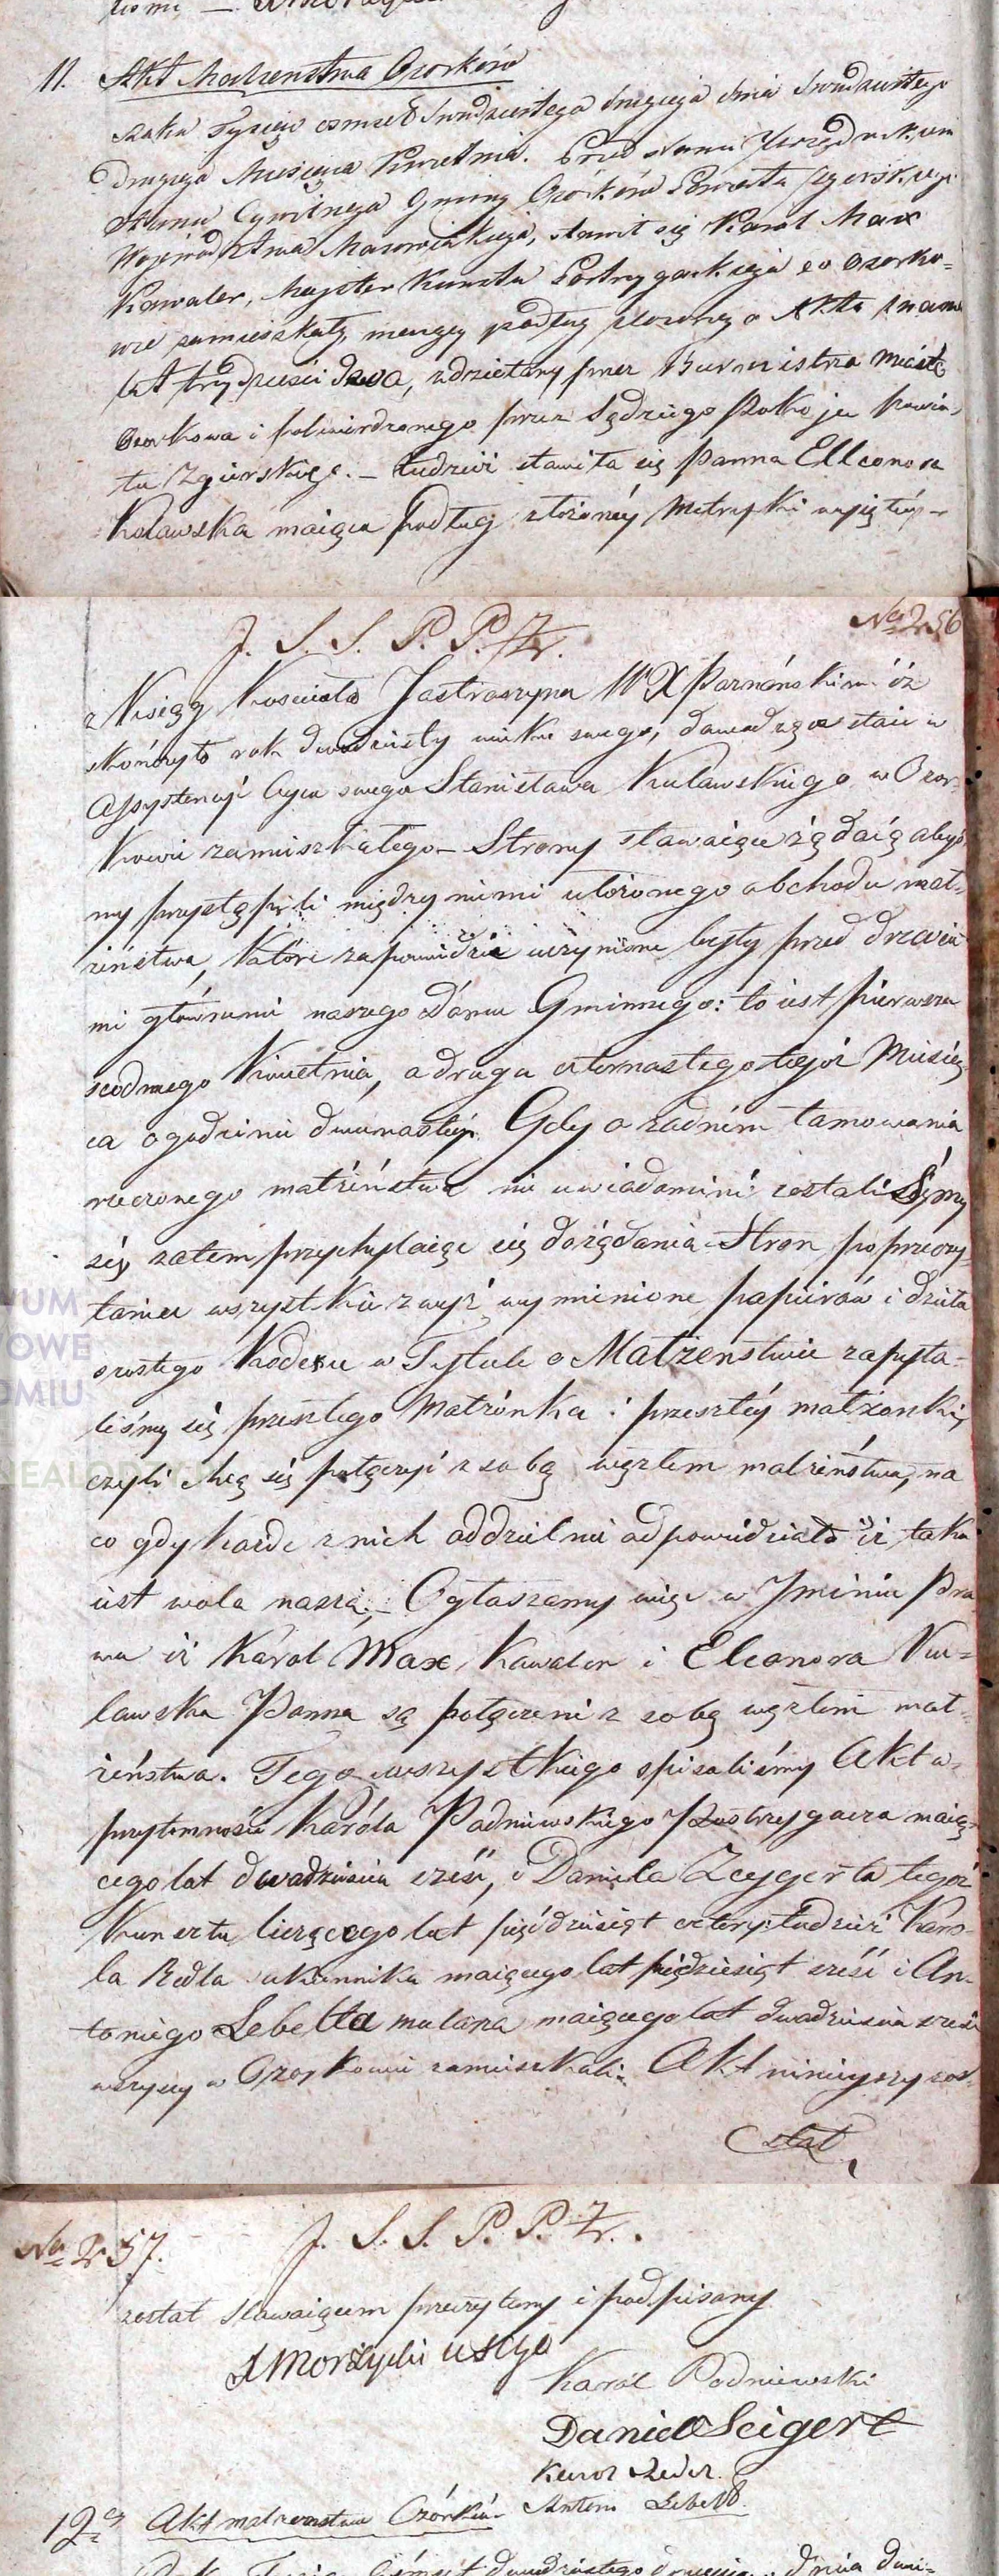 11. Akt Małzenstwa Ozorków
Roku Tysiąc osmset dwudziestego drugiego dnia dwudziestego
drugiego Miesiąca Kwietnia. Przed Nami Urzędnikiem
Stanu Cywilnego Gminy Ozorków Powiatu Zgierskiego
Wojewodztwa Mazowieckiego, stawił się Karol Max
Kawaler, Majster Kunsztu Postrzygackiego w Ozorko=
wie zamieszkały, maiący podług złożonego Aktu znania
lat trzydzieści dwa, udzielany przez Burmistrza Miasta
Ozorkowa i potwierdzonego przez Sędziego Pokoju Powia-
tu Zgierskiego. – Tudzież stawiła się Panna Elleonora
Kolawska maiąca podług złożonéy Metryki wyiętéy
J. S. S. P. P. Zr.
No 256
z Księgy Koscioła Jastroszyna W X Poznańskim iż
skończyła rok dwudziesty wieku swego, dawadząca staie w
Assystencyi Oyca swego Stanisława Kulawskiego w Ozor-
kowie zamieszkałego – Strony stawaiące żądaią abyś-
my przystąpili między nimi ułożonego obchodu mał-
żeństwa, które zapowiedzie uczynione były przed drzwia
mi głównemi naszego Domu Gminnego: to iest pierwsza
siodmego Kwietnia, a druga czternastego tegóż Miesią
ca o godzinie dwunastéy. Gdy o żadném tamowania
rzeczonego małżeństwa nie uwiadomini zostaliśmy
się zatem przychylaiąc się do żądania Stron po przeczy-
taniu wszystkie zwyż wymienione papierów i działa
szostego Kodexu w Tytule o Małżenstwie zapyta-
liśmy się przeszłego Małżonka i przeszłéy małżonki
czyli chcą się połączyć z sobą węzłem małżeństwa, na
co gdy każde z nich oddzielnie odpowiedziało iż taka
iest wola nasza. – Ogłaszamy więc w Jmieniu Pra
wa iż Karol Max, Kawaler i Eleonora Ku=
lawska Panna są połączeni z sobą węzłem mał-
żeństwa. Tego wszystkiego spisaliśmy Akt w
przytomnośći Karóla Padniewskiego Postrzygacza maią-
cego lat dwadzieścia sześć, i Daniela Zeygerta tegóż
Kunsztu liczącego lat pięćdziesiąt cztery: tudzież Karo-
la Redla sukiennika maiącego lat pięćdziesiąt sześć i An-
toniego Lebelta mularza maiącego lat dwadzieścia sześć
wszyscy w Ozorkowie zamieszkali. Akt ninieyszy zos-
stał
No 257.
J. S. S. P. P. Zr.
został stawaiącem przeczytany i podpisany
Karól Podniewski
Daniel Seigert
Karol Redel.
Antoni Lebelt.
12. Akt małzenstwa Ozórków